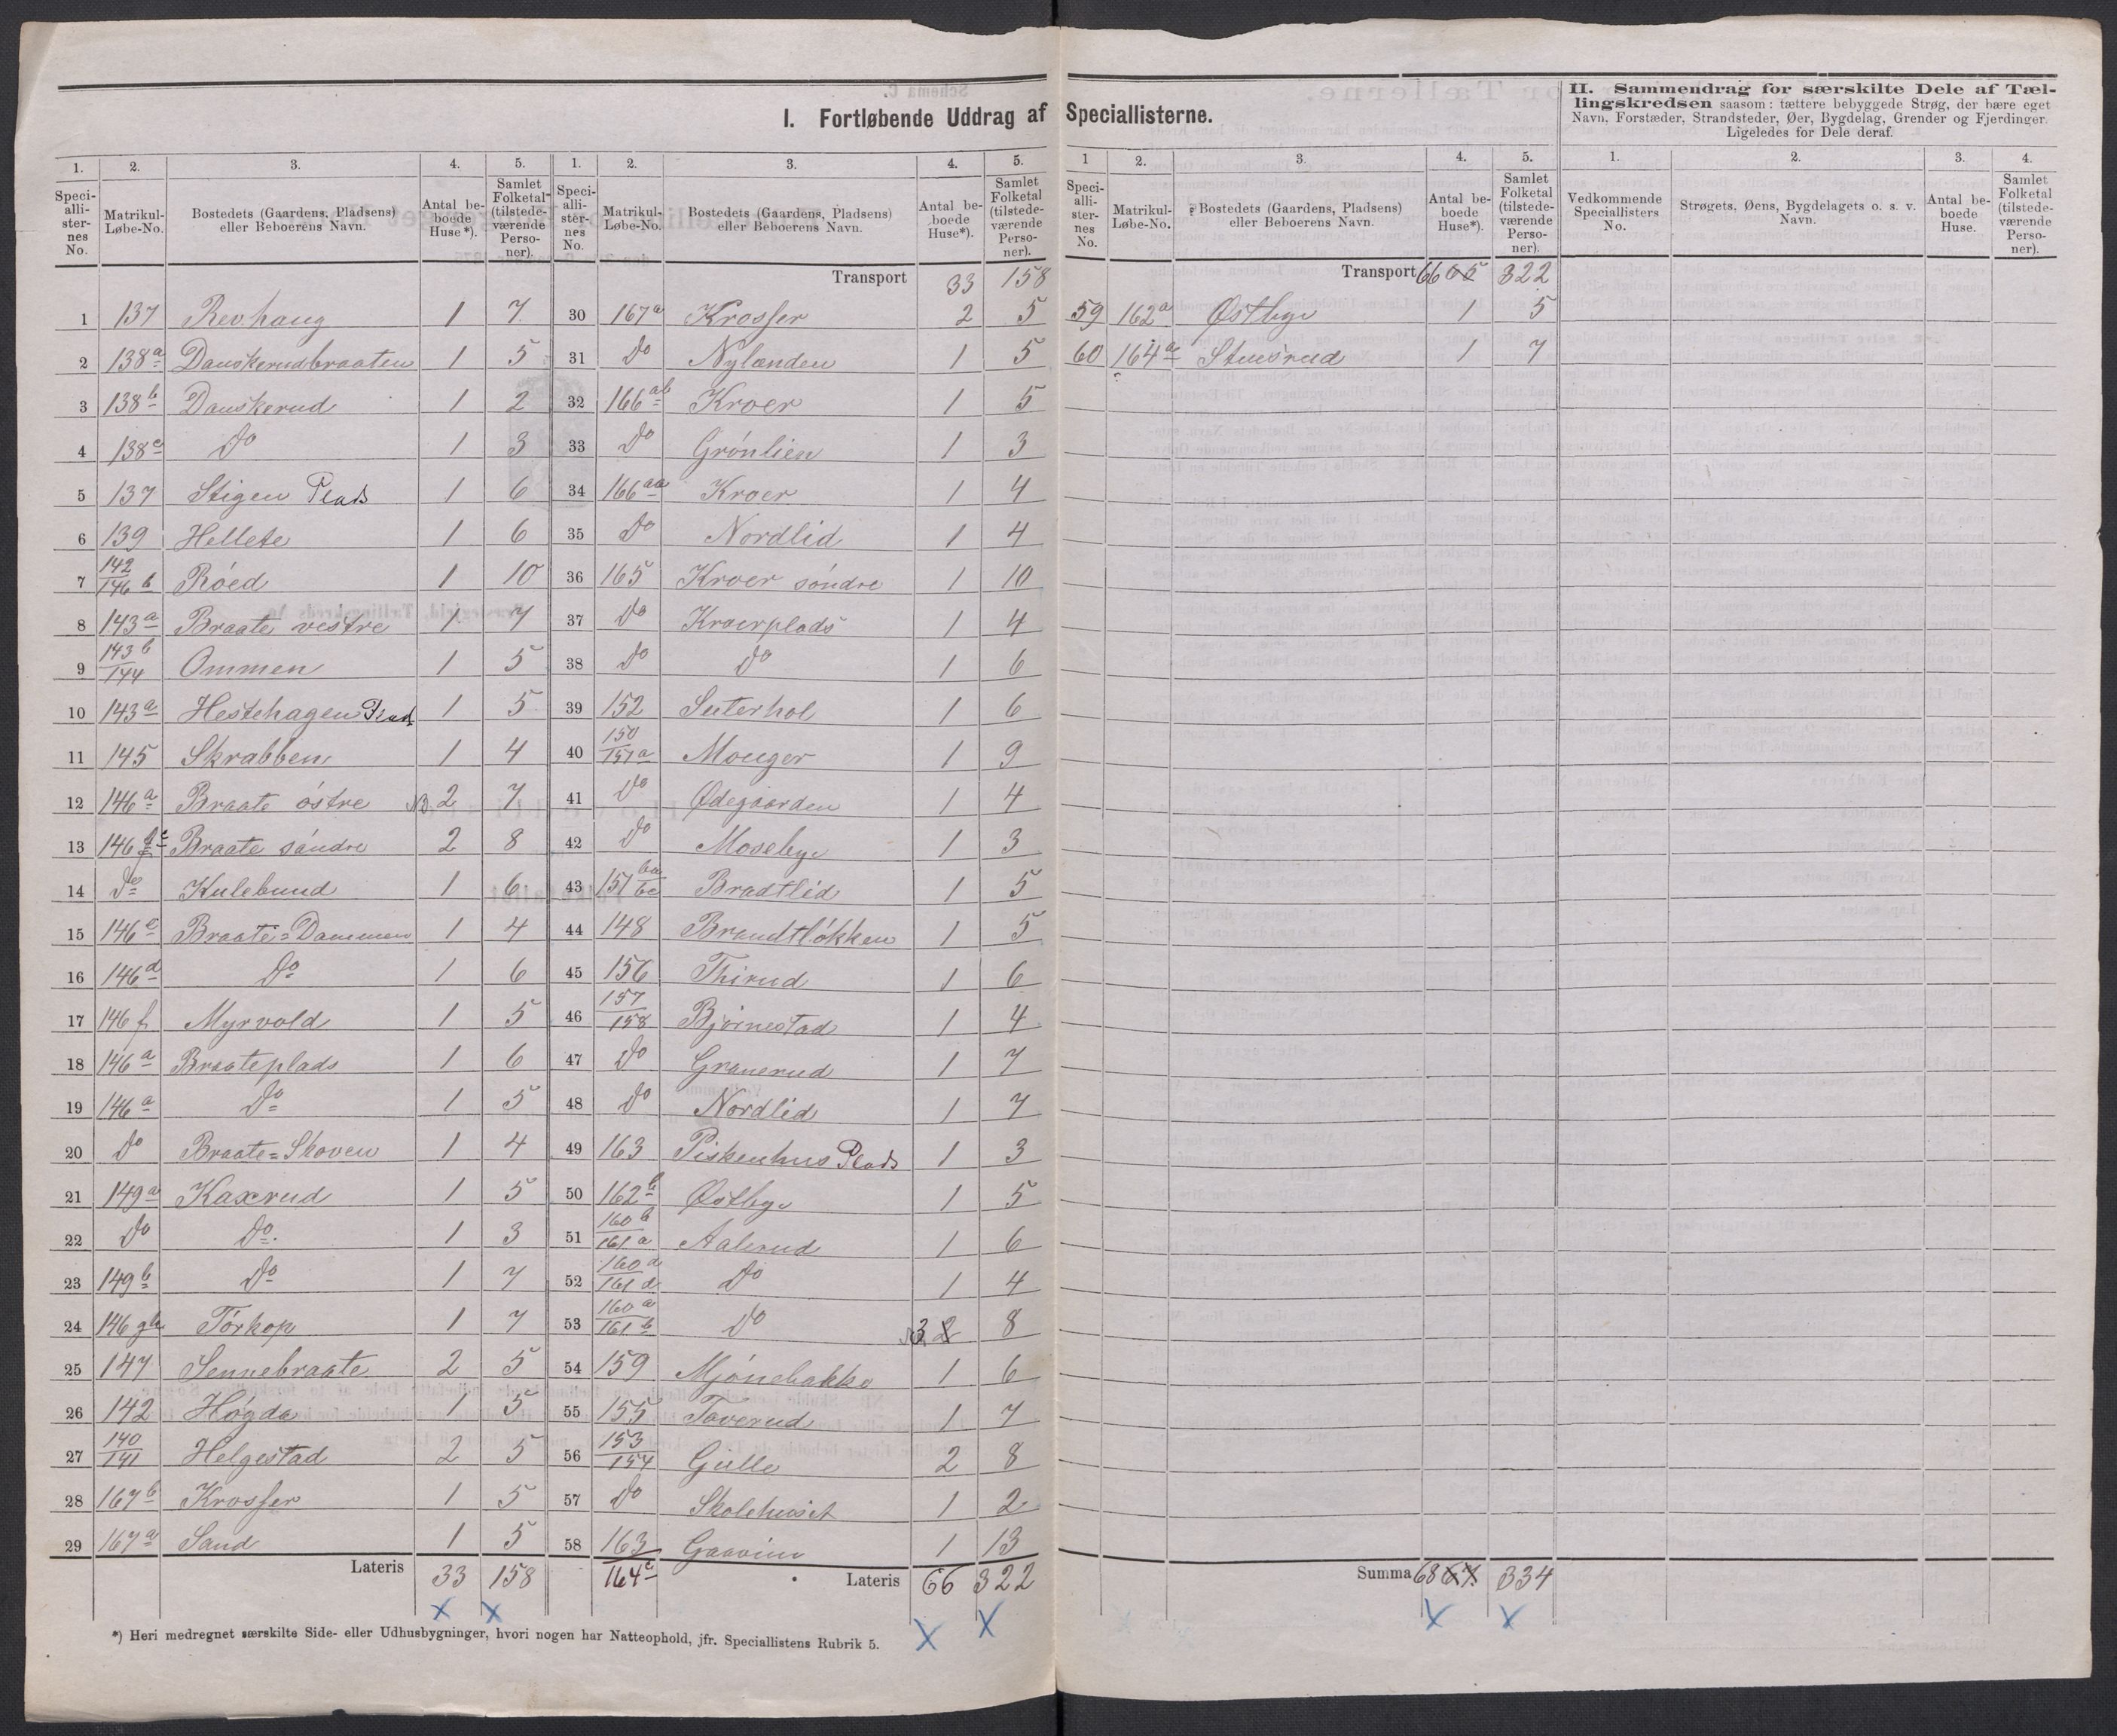 I. Fortløbende Uddrag af Speciallisterne.
1. 2. 3. 4. 5. 1. 2. 3. 4. 5.
Speciallisternes No. Matrikul-Løbe-No. Bostedets (Gaardens, Pladsens) eller Beboerens Navn. Antal beboede Huse*). Samlet Folketal (tilstedeværende Personer). Speciallisternes No. Matrikul-Løbe-No. Bostedets (Gaardens, Pladsens) eller Beboerens Navn. Antal beboede Huse*). Samlet Folketal (tilstedeværende Personer).
1 137 Revhaug 1 7
2 138a Danskerudbraaten 1 5
3 138b Danskerud 1 2
4 138c Do 1 3
5 137 Stigen Plads 1 6
6 139 Hellete 1 6
7 142/146 b Röed 1 10
8 143a Braate vestre 1 7
9 143b/144 Ommen 1 5
10 143a Hestehagen Plads 1 5
11 145 Skrabben 1 4
12 146a Braate östre NB 2 7
13 146 Braate söndre 2 8
14 Do Kulebund 1 6
15 146e Braate=Dammen 1 4
16 146d Do 1 6
17 146f Myrvold 1 5
18 146a Braateplads 1 6
19 146a Do 1 5
20 Do Braate=Skoven 1 4
21 149a Kaxrud 1 5
22 Do Do 1 3
23 149b Do 1 7
24 146gh Törkop 1 7
25 147 Sennebraate 2 5
26 142 Högda 1 5
27 140/141 Helgestad 2 5
28 167b Krosser 1 5
29 167a Sand 1 5
Lateris 33 158
Transport 33 158
30 167a Krosser 2 5
31 Do Nylænden 1 5
32 166ab Kroer 1 5
33 Do Grönlien 1 3
34 166aa Kroer 1 4
35 Do Nordlid 1 4
36 165 Kroer söndre 1 10
37 Do Kroerplads 1 4
38 Do Do 1 6
39 152 Seterhol 1 6
40 150/151a Monger 1 9
41 Do Ødegaarden 1 4
42 Do Mosebye 1 3
43 151 ba/bc Bradtlid 1 5
44 148 Brandtlökken 1 5
45 156 Thirud 1 6
46 157/158 Björnestad 1 4
47 Do Granerud 1 7
48 Do Nordlid 1 7
49 163 Piskenhus Plads 1 3
50 162b Østbye 1 5
51 160b/161a Aalerud 1 6
52 160d/161d Do 1 4
53 160a/161b Do 3 2 8
54 159 Mjönebakke 1 6
55 155 Taverud 1 7
56 153/154 Gulle 2 8
57 Do Skolehuset 1 2
58 163 Gaarim 1 13
164c Lateris 66 322
*) Heri medregnet særskilte Side- eller Udhusbygninger, hvori nogen har Natteophold, jfr. Speciallistens Rubrik 5.
1 2. 3. 4. 5.
Speciallisternes No. Matrikul-Løbe-No. Bostedets (Gaardens, Pladsens) eller Beboerens Navn. Antal beboede Huse*). Samlet Folketal (tilstedeværende Personer).
Transport 66 65 322
59 162a Østbye 1 5
60 164a Stuesrud 1 7
Summa 68 67 334
II. Sammendrag for særskilte Dele af Tællingskredsen saasom: tættere bebyggede Strøg, der bære eget
Navn, Forstæder, Strandsteder, Øer, Bygdelag, Grender og Fjerdinger.
Ligeledes for Dele deraf.
1. 2. 3. 4.
Vedkommende Speciallisters No. Strøgets, Øens, Bygdelagets o. s. v. Navn. Antal beboede Huse. Samlet Folketal (tilstedeværende Personer).